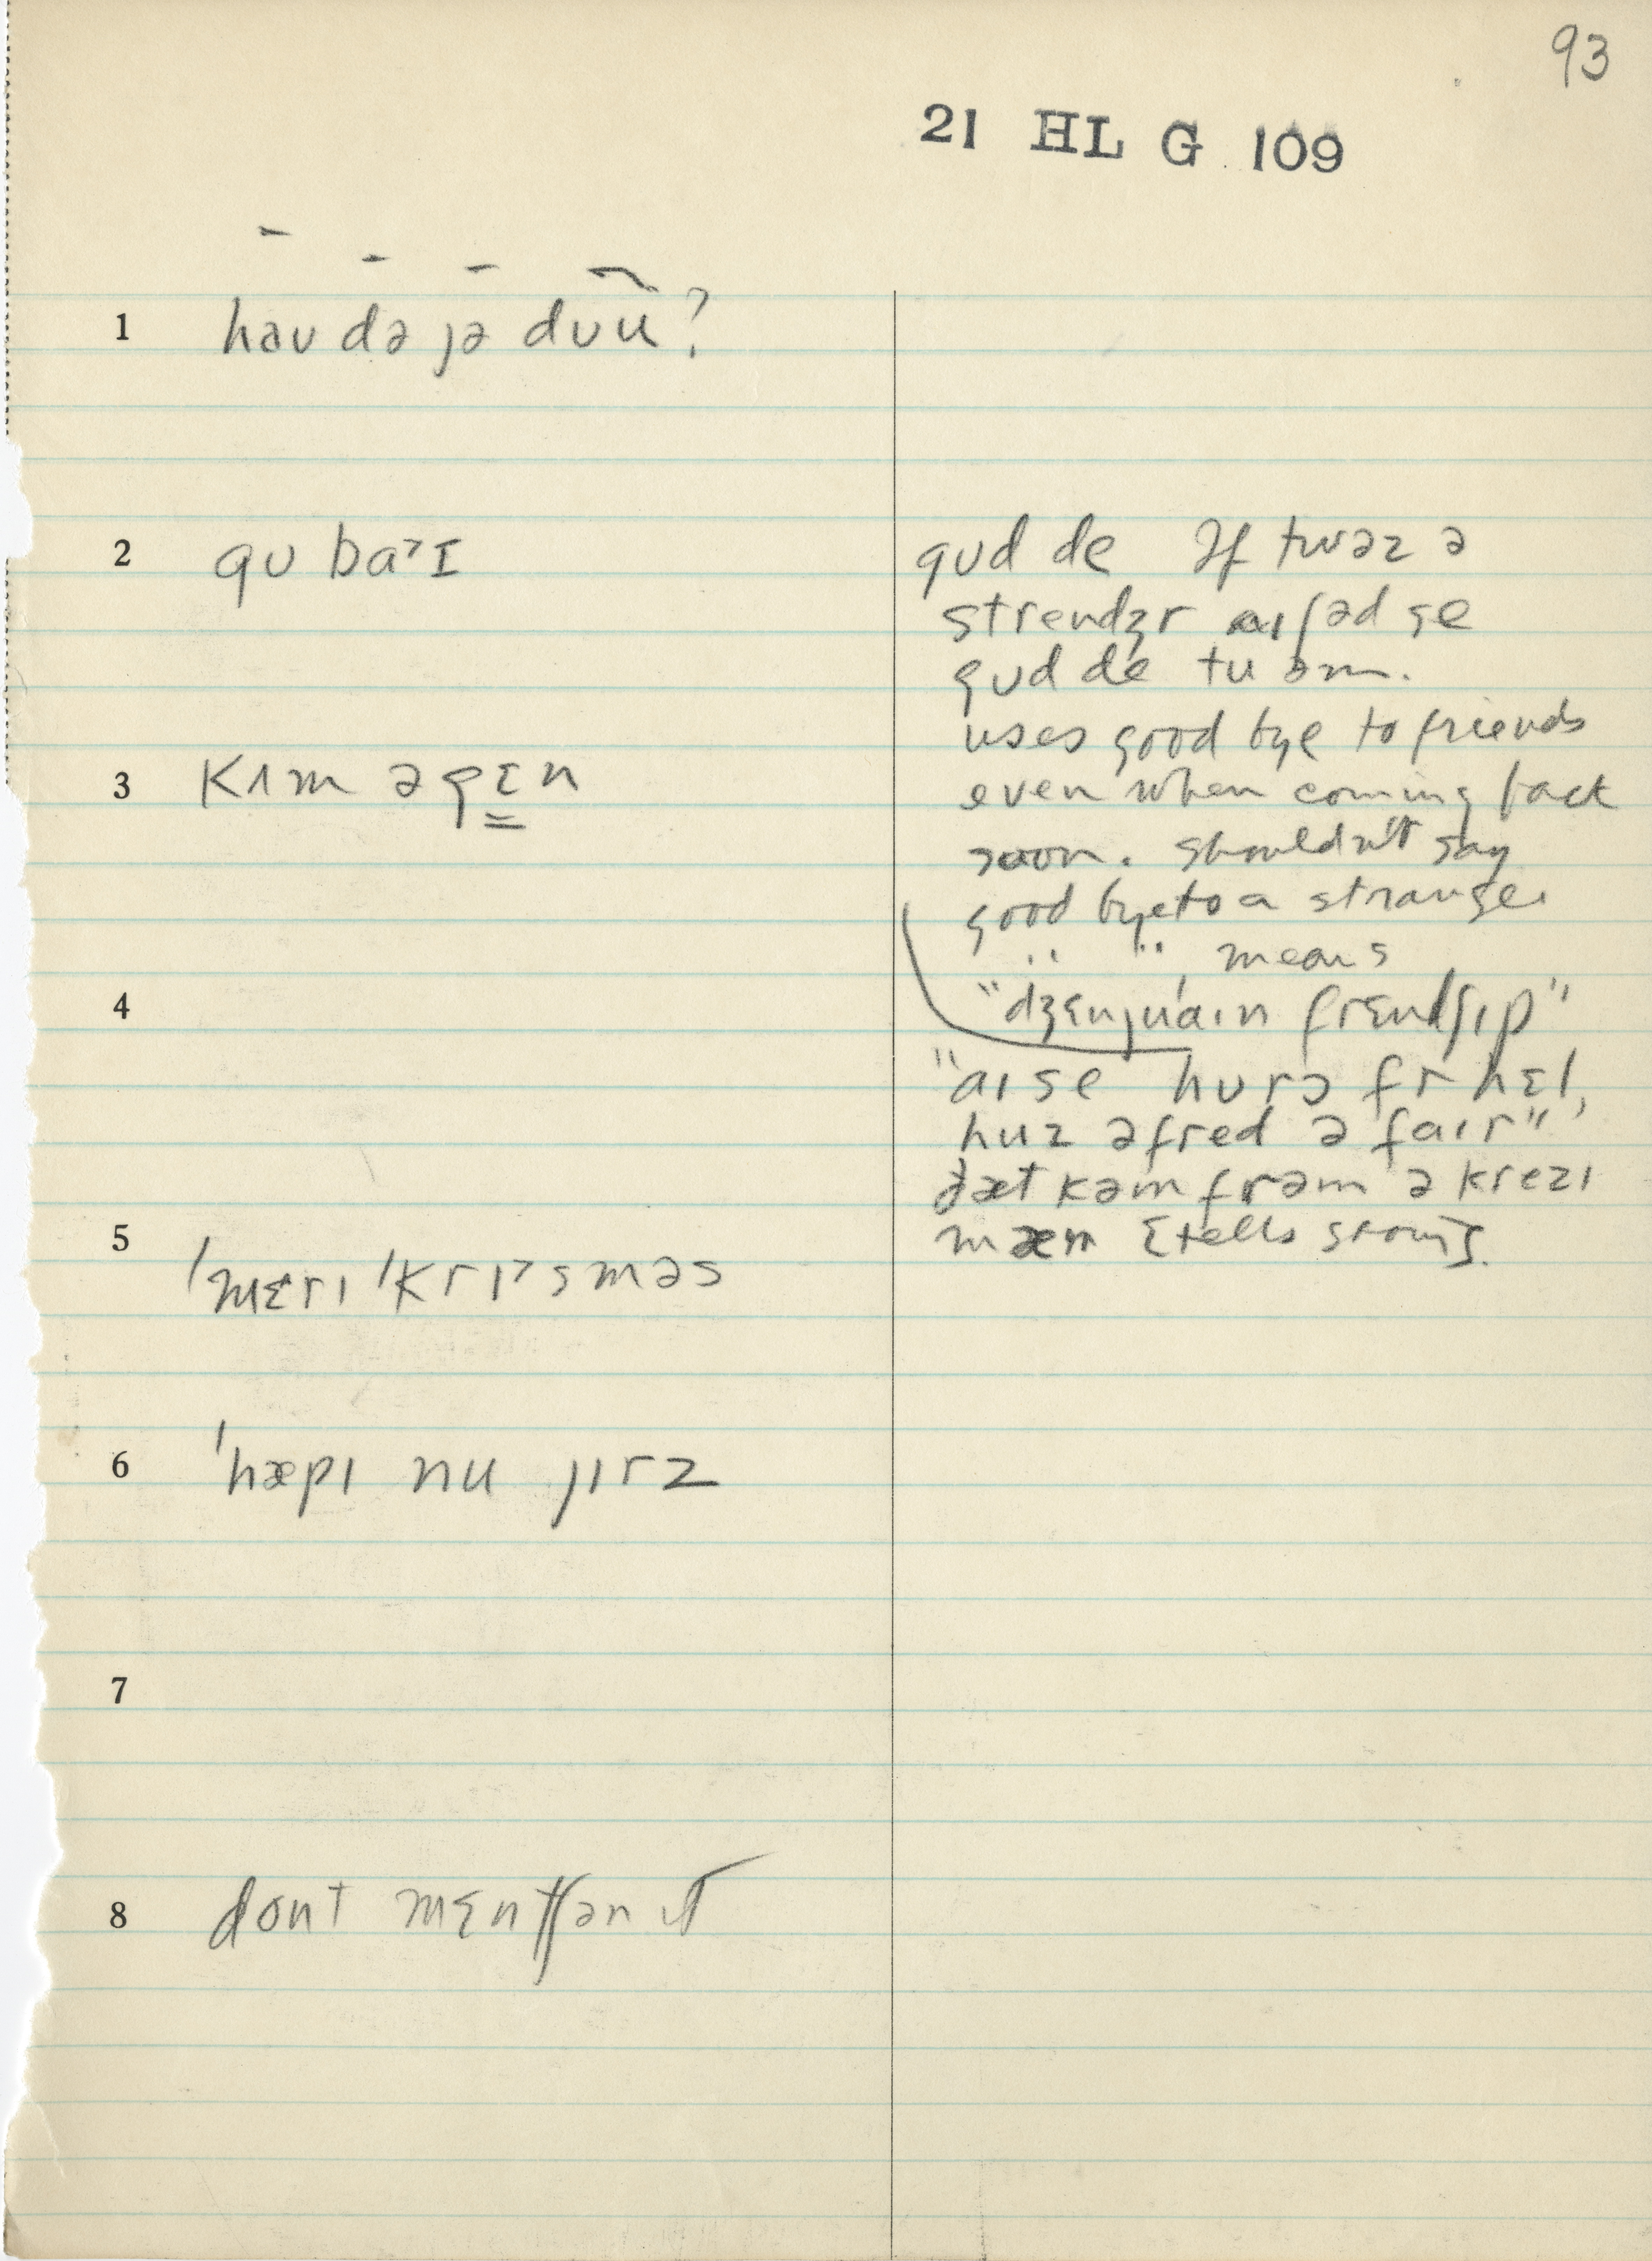 93
21 HL G 109
1 haʊ də jə dʊu?
2 gʊ ba˃ɪ
gʊd de ɪf twəz ə
strendʒr aɪ ʃəd se
gʊd de tu əm.
uses good bye to friends
even when coming back
soon. shouldn't say
good bye to a stranger
" " means
"dʒɛnjuaɪn frɛndʃɪp"
"aɪ se hʊrɔ fr hɛl,
huz əfred ə faɪr"
ðæt kəm frəm ə krezɪ
mæn [tells story].
3 kʌm əgɛn
4
5 'mɛrɪ 'krɪ˃sməs
6 'hæpɪ nu jɪrz
7
8 dont mɛntʃən ɪt